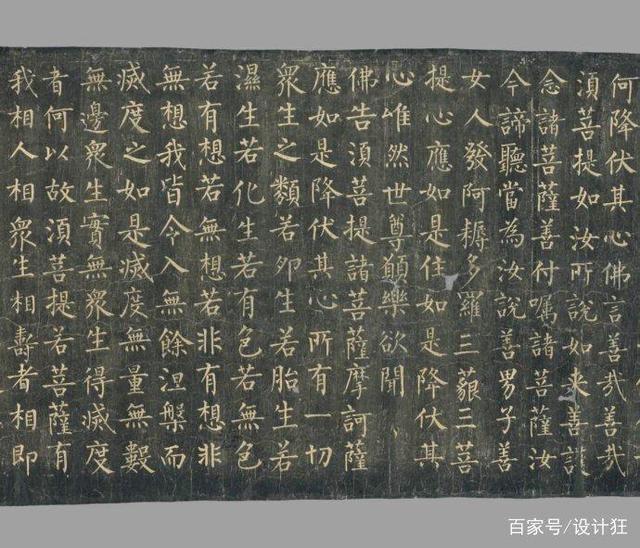 何降伏其心佛言善哉善哉
須菩提如汝所說如来善護
念諸菩薩善付囑諸菩薩汝
今諦聽當為汝說善男子善
女人發阿耨多羅三藐三菩
提心應如是住如是降伏其
心唯然世尊願樂欲聞
佛告須菩提諸菩薩摩訶薩
應如是降伏其心所有一切
衆生之類若卵生若胎生若
濕生若化生若有色若無色
若有想若無想若非有想非
無想我皆令入無餘涅槃而
滅度之如是滅度無量無數
無邊衆生實無衆生得滅度
者何以故須菩提若菩薩有
我相人相衆生相壽者相即
百家号/设计狂